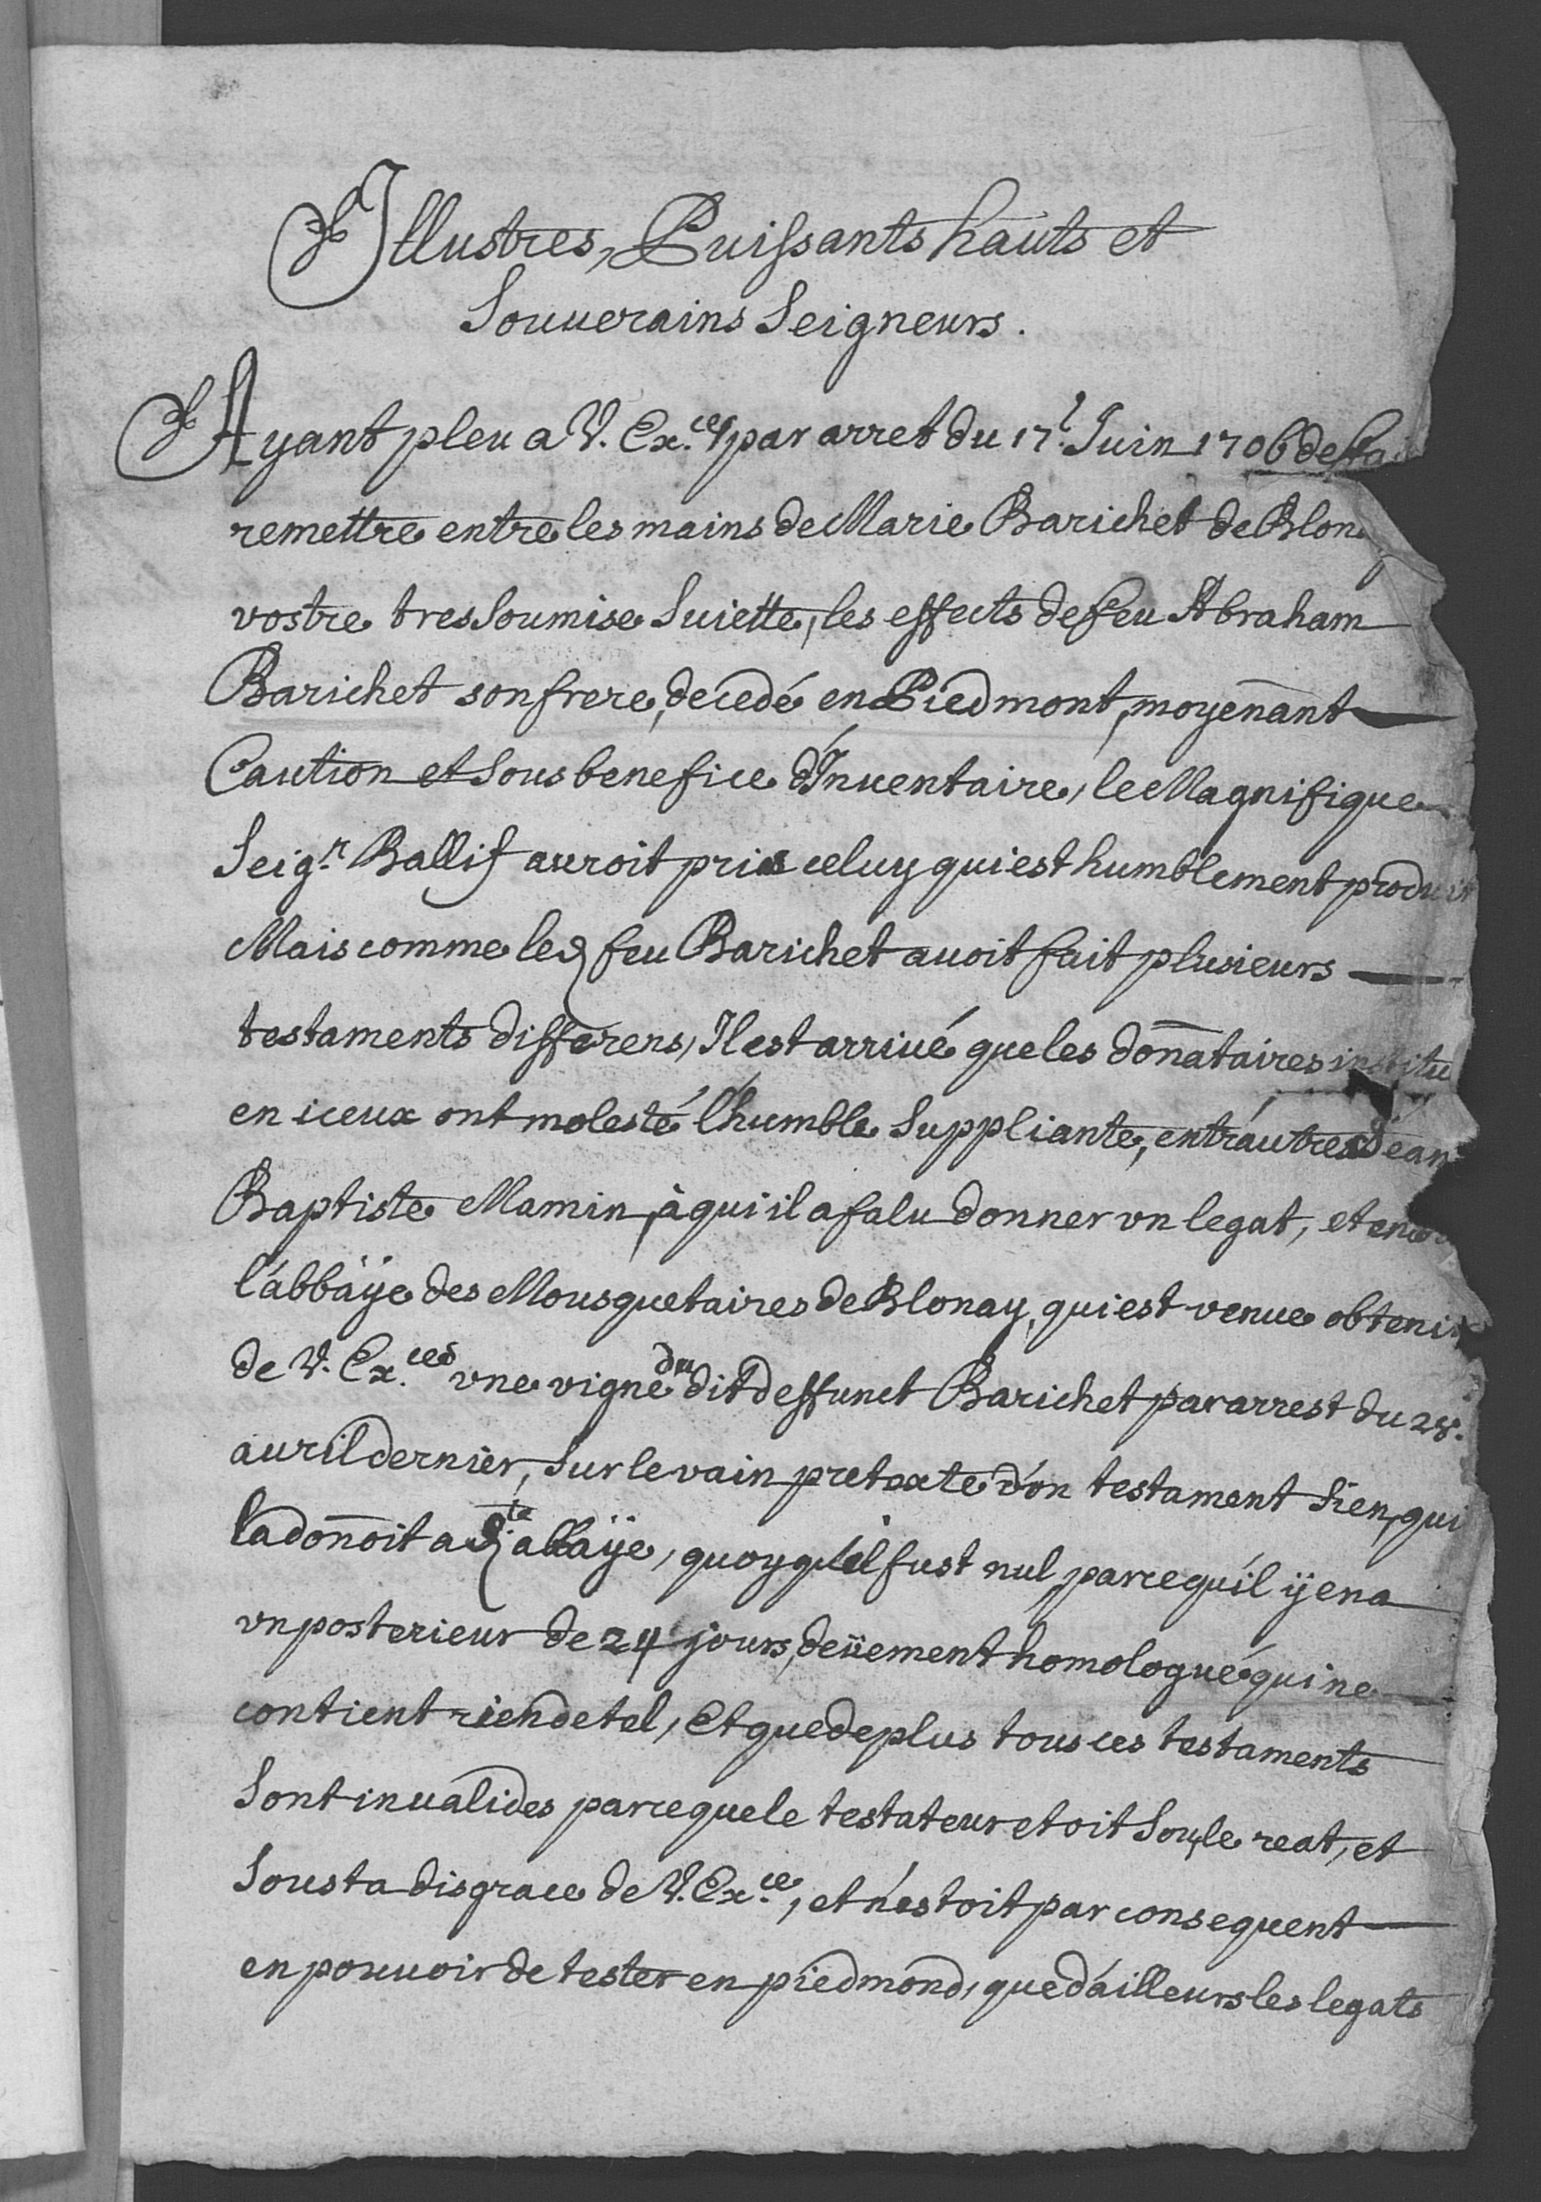 Illustres, Puissants hauts et
Souuerains Seigneurs.
Ayant pleu a V. Ex.ces par arret du 17.e Juin 1706 de
remettre entre les mains de Marie Barichet de Blon
vostre tres soumise Suiette, les effects de feu Abraham
Barichet son frere, decedé en Piedmont, moyenāt
Caution et sous benefice d'Inuentaire, le Magnifique
Seig.r Ballif auroit pris celuy qui est humblement produit
Mais comme led feu Barichet auoit fait plusieurs
testaments differens, Il est arriué que les don̄ataires institu
en iceux ont molesté l'humble Suppliante, entr'autres Jean
Baptiste Mamin, à qui il a falu donner vn legat, et
l'abbaÿe des Mousquetaires de Blonay, qui est venue obtenir
de V. Ex.ces vne vigne du dit deffunct Barichet par arrest du 28.
auril dernier, sur le vain pretexte d'vn testament sien, qui
la don̄oit a d.te abbaÿe, quoyqu'il fust nul, parcequ'il ÿ en a
vn posterieur de 24 jours, deüement homologué qui ne
contient rien de tel, Et que de plus tous ces testaments
sont inualides parceque le testateur etoit sous le reat, et
sous ta disgrace de V. Ex.ce, et n'estoit par consequent
en pouuoir de tester en piedmond, que d'ailleurs les legats